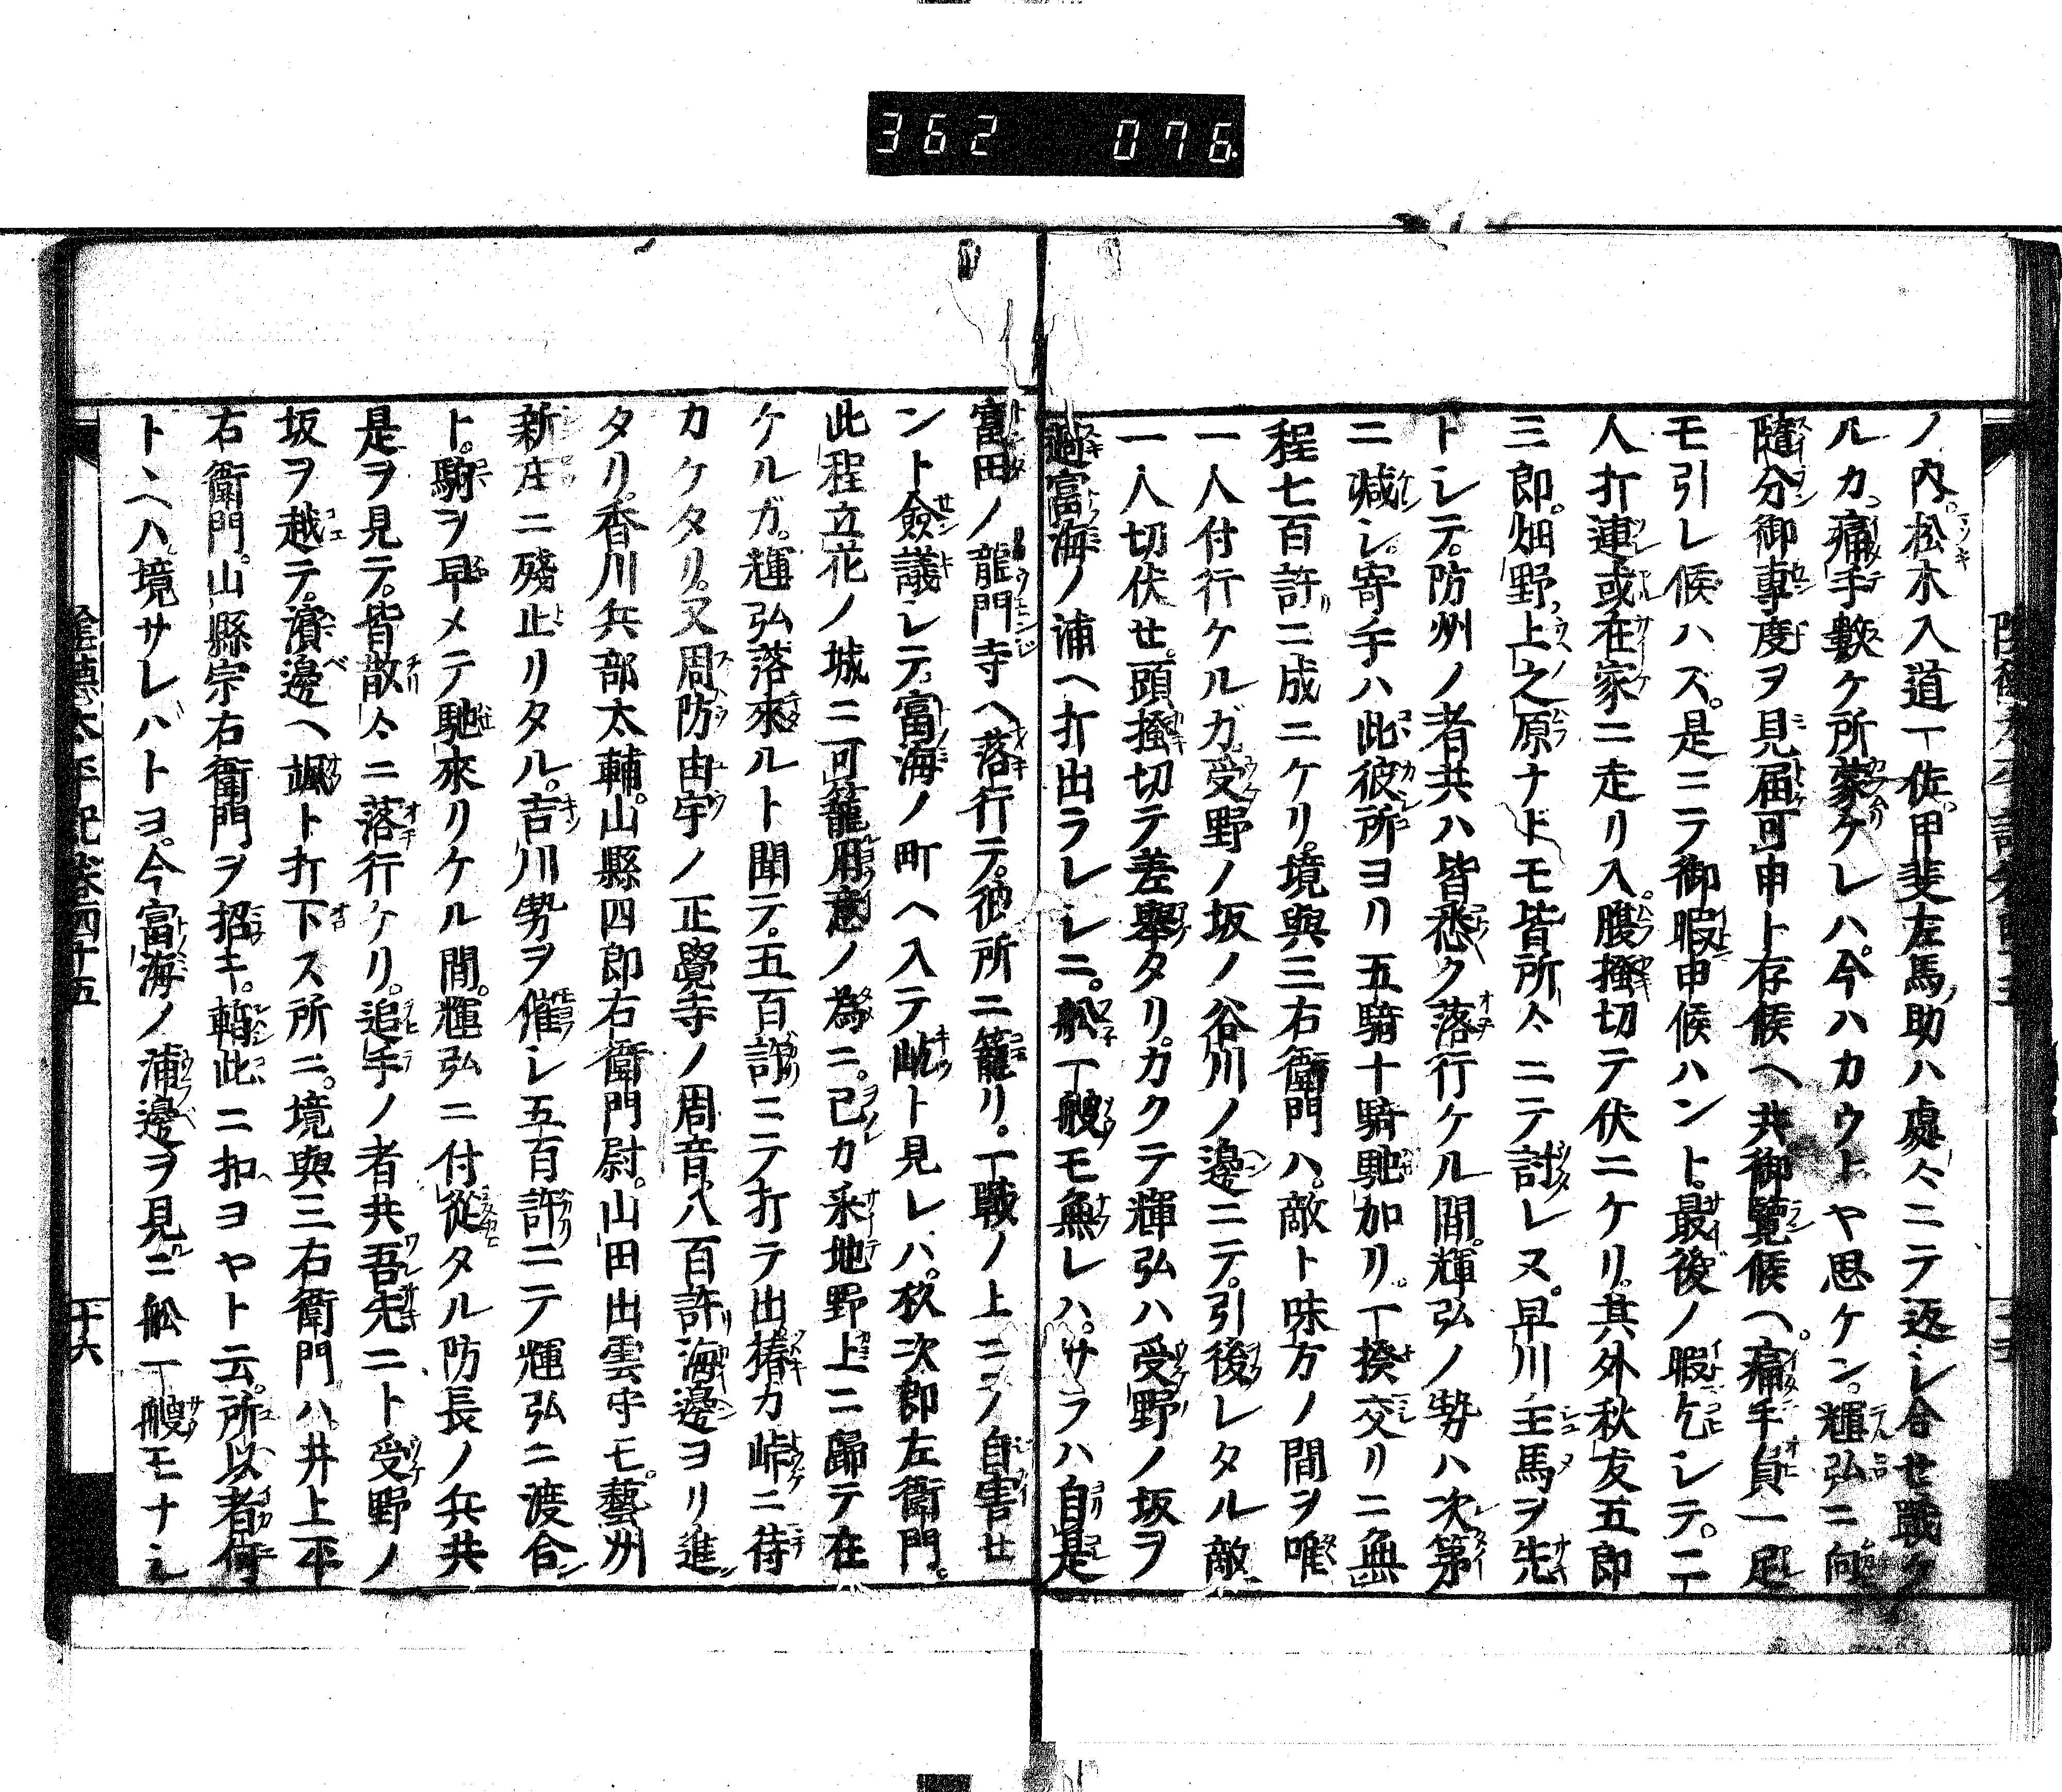 362 076
ノ内。松木入道一佐。甲斐左馬ノ助ハ處々ニテ返シ合セ戰ケ
ルカ。痛手數ケ所蒙ケレハ。今ハカウトヤ思ケン。輝弘ニ向
隨分御專度ヲ見届可申ト存候ヘ共御覽候ヘ。痛手負一足
モ引レ候ハズ。是ニテ御暇申候ハント。最後ノ暇乞シテ。二
人打連或在家ニ走リ入。腹搔切テ伏ニケリ。其外秋友五郎
三郎。畑野。上之原ナドモ皆所々ニテ討レヌ。早川主馬ヲ先
トシテ。防州ノ者共ハ皆悉ク落行ケル間。輝弘ノ勢ハ次第
ニ減シ。寄手ハ此彼所ヨリ五騎十騎馳加リ。一揆交リニ無
程七百許ニ成ニケリ。境與三右衞門ハ。敵ト味方ノ間ヲ唯
一人付行ケルガ。受野ノ坂ノ谷川ノ邊ニテ。引後レタル敵
一人切伏セ。頭搔切テ差擧タリ。カクテ輝弘ハ受野ノ坂ヲ
過富海ノ浦ヘ打出ラレシニ。舩一艘モ無レハ。サラハ自是
富田ノ龍門寺ヘ落行テ。彼所ニ籠リ。一戰ノ上ニノ自害セ
ント僉議シテ。富海ノ町ヘ入テ屹ト見レハ。杦次郎左衞門。
此程立花ノ城ニ可籠用意ノ為ニ。己カ釆地野上ニ歸テ在
ケルガ。輝弘落來ルト聞テ。五百許ニテ打テ出椿カ峠ニ待
カケタリ。又周防由宇ノ正覺寺ノ周音。八百許海邊ヨリ進
タリ。香川兵部太輔。山縣四郎右衞門尉。山田出雲守モ。藝州
新庄ニ殘止リタル。吉川勢ヲ催シ五百許ニテ輝弘ニ渡合
ト。駒ヲ早メテ馳來リケル間。輝弘ニ付從タル防長ノ兵共
是ヲ見テ。皆散々ニ落行ケリ。追手ノ者共吾先ニト受野ノ
坂ヲ越テ。濱邊ヘ颯ト打下ス所ニ。境與三右衞門ハ。井上平
右衞門。山縣宗右衞門ヲ招キ。暫此ニ扣ヨヤト云。所以者何
トヽヘハ境サレハトヨ。今富海ノ浦邊ヲ見ニ舩一艘モナシ
陰德太平記卷四十五
十六